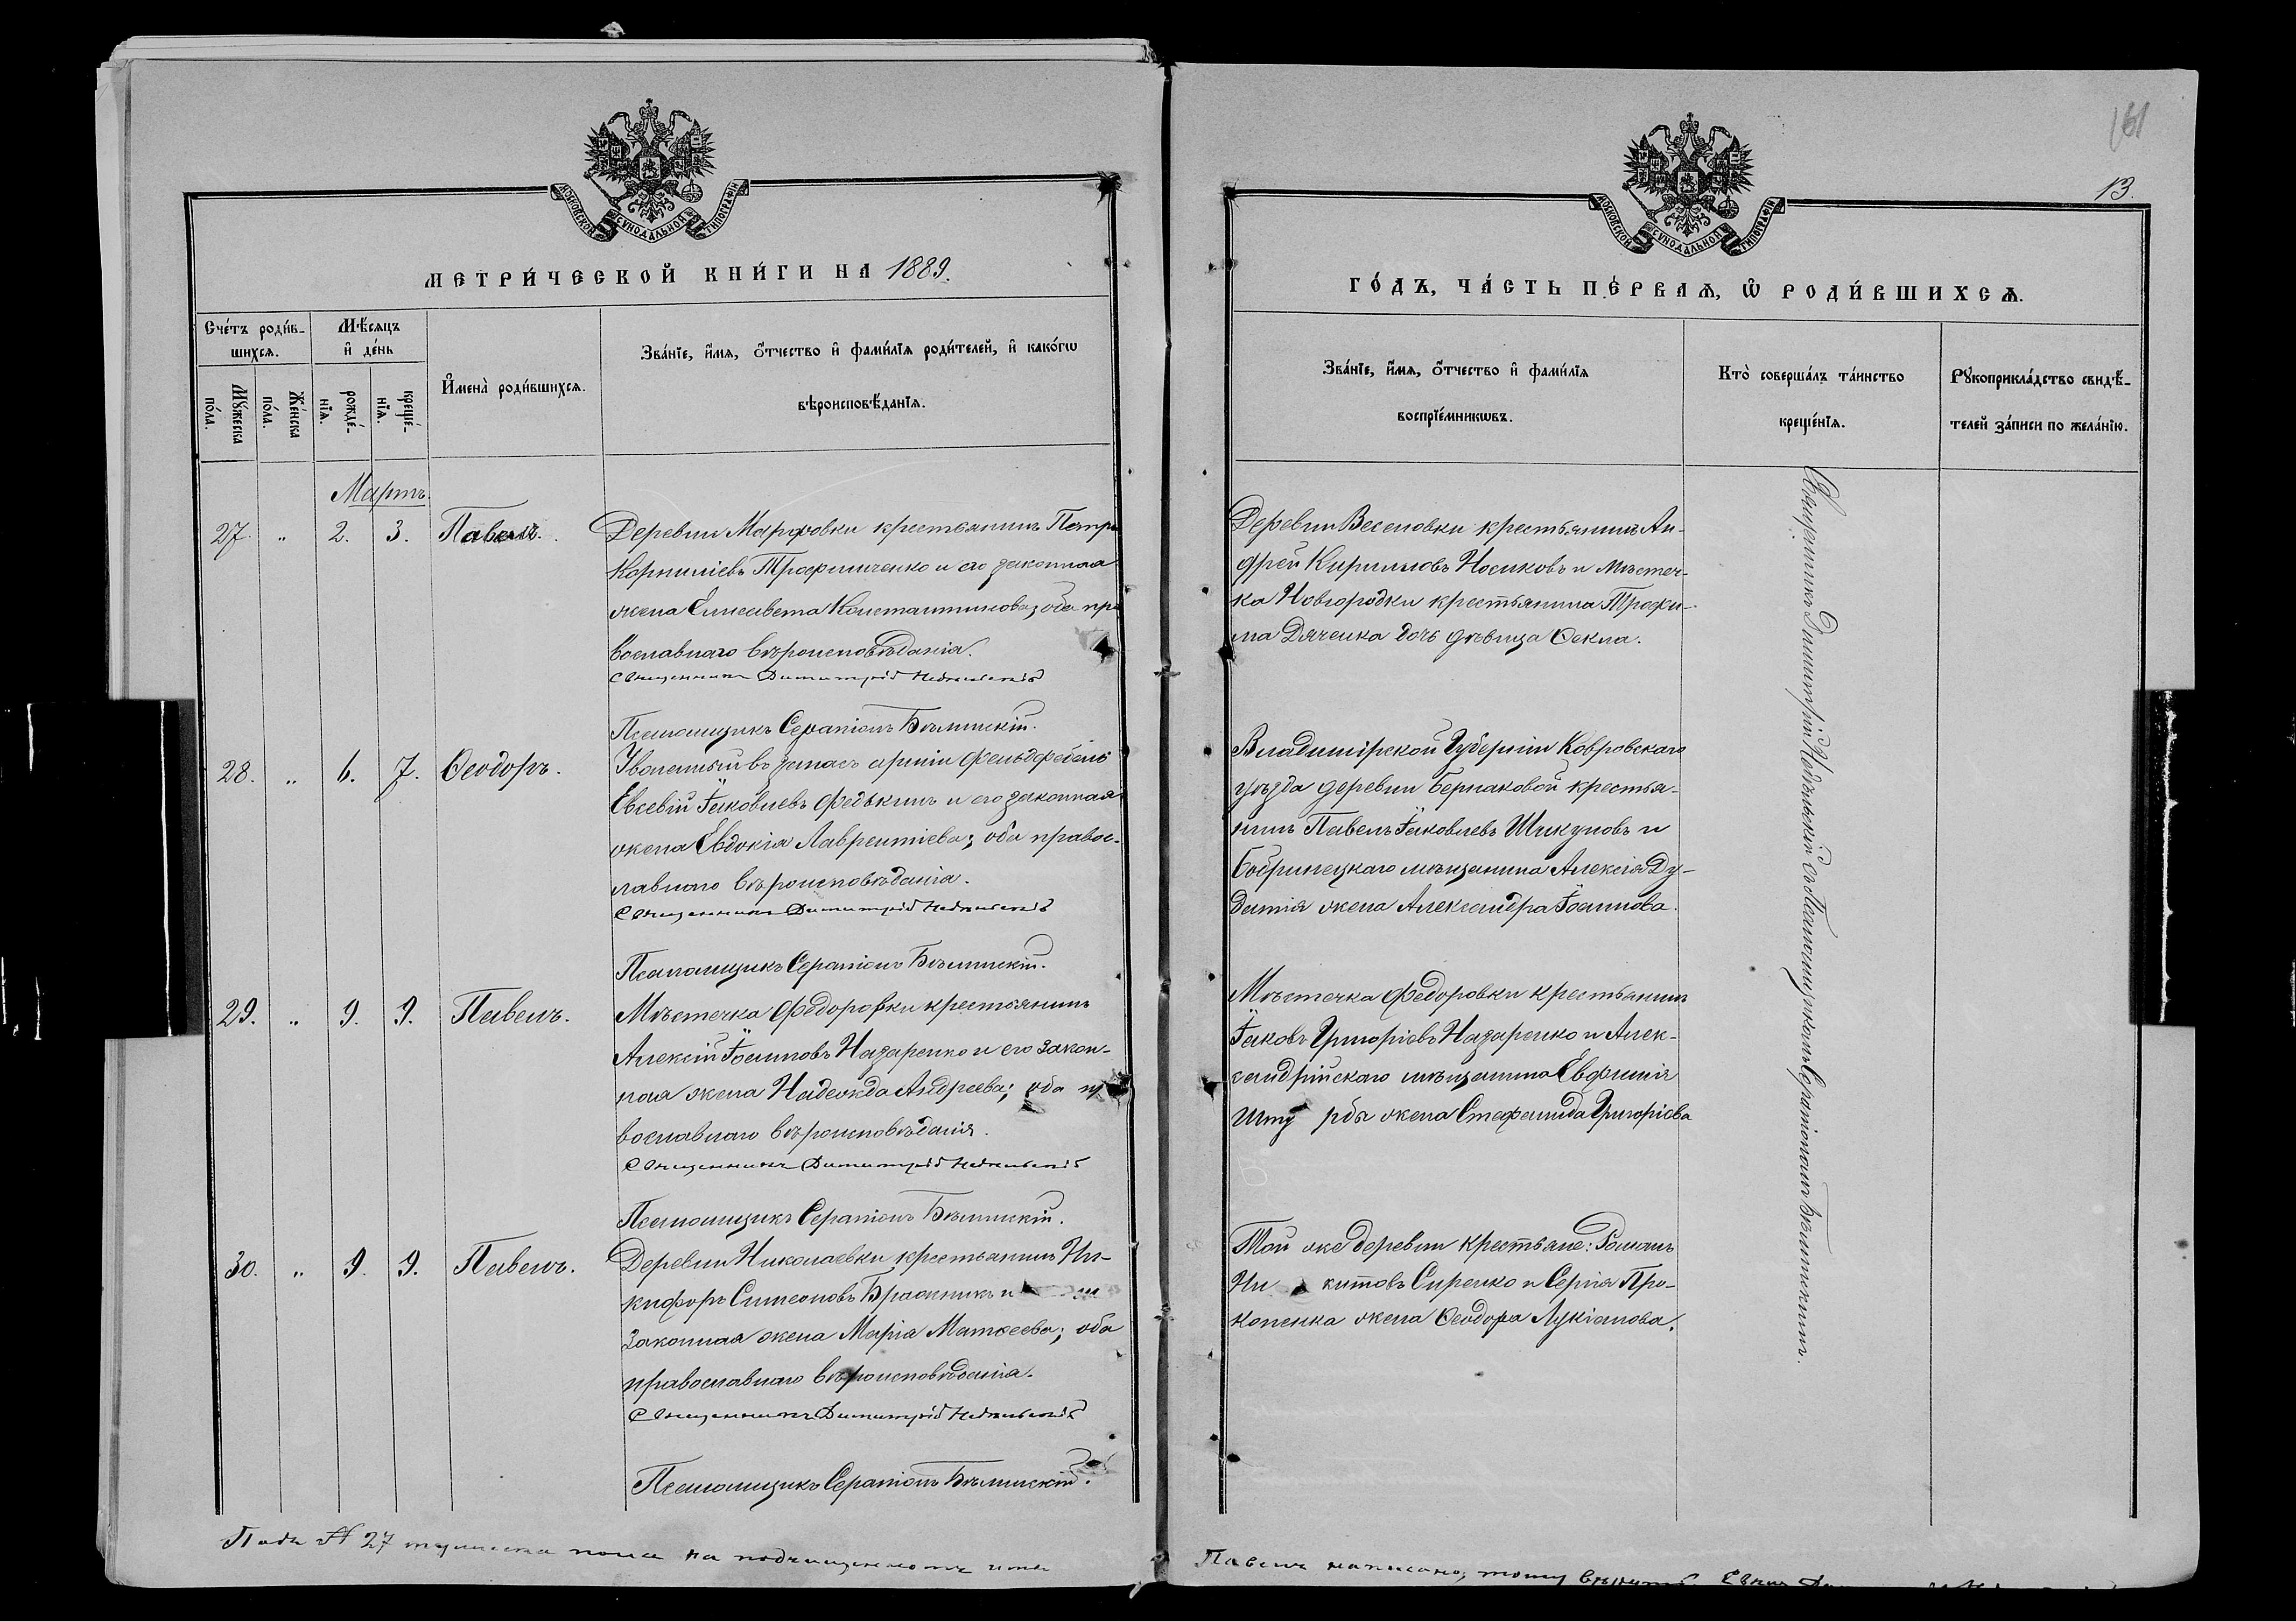 161
13.
МОСКОВСКОЙ СѴНОДАЛЬНОЙ ТИПОГРАФІИ
МЕТРИ́ЧЕСКОЙ КНИ́ГИ НА 1889.
Сче́тъ роди́в-
шихсѧ.
Мѣ́сѧцъ
и҆ де́нь
Мꙋ́жеска
по́ла.
Же́нска
по́ла.
рожде́-
нїѧ.
креще́-
нїѧ.
И҆мена̀ роди́вшихсѧ.
Зва́нїе, и҆́мѧ, ѻ҆́тчество и҆ фами́лїѧ роди́телей, и҆ како́гѡ
вѣроисповѣ́данїѧ.
Мартъ.
27. „ 2. 3. Павелъ.
Деревни Марфовки крестьянинъ Петръ
Корниліевъ Трофимченко и его законная
жена Елисавета Константинова; оба пра
вославнаго вѣроисповѣданія.
Священникъ Димитрій Недѣльскій
Псаломщикъ Серапіонъ Бѣлинскій.
28. „ 6. 7. Ѳеодоръ.
Уволенный въ запасъ арміи фельдфебель
Евсевій Іаковлевъ Федькинъ и его законная
жена Евдокія Лаврентіева; оба правос-
лавнаго вѣроисповѣданія.
Священникъ Димитрій Недѣльскій
Псаломщикъ Серапіонъ Бѣлинскій.
29. „ 9. 9. Павелъ.
Мѣстечка Федоровки крестьянинъ
Алексій Іоанновъ Назаренко и его закон-
ная жена Надежда Андреева; оба пр
вославнаго вѣроисповѣданія.
Священникъ Димитрій Недѣльскій
Псаломщикъ Серапіонъ Бѣлинскій.
30. „ 9. 9. Павелъ.
Деревни Николаевки крестьянинъ Ни-
кифоръ Симеоновъ Бражникъ и
законная жена Марія Матѳеева; оба
православнаго вѣроисповѣданія.
Священникъ Димитрій Недѣльскій
Псаломщикъ Серапіонъ Бѣлинскій.
Подъ № 27 мужеска пола на подчищенномъ имя
МОСКОВСКОЙ СѴНОДАЛЬНОЙ ТИПОГРАФІИ
ГО́ДЪ, ЧА́СТЬ ПЕ́РВАѦ, Ѡ҆ РОДИ́ВШИХСѦ.
Зва́нїе, и҆́мѧ, ѻ҆́тчество и҆ фами́лїѧ
воспрїе́мникѡвъ.
Кто̀ соверша́лъ та́инство
креще́нїѧ.
Рꙋкоприкла́дство свидѣ́-
телей за́писи по жела́нїю.
Деревни Веселовки крестьянинъ Ан-
дрей Кирилловъ Носиковъ и мѣстеч-
ка Новгородки крестьянина Трофи-
ма Дяченка дочь дѣвица Ѳекла.
Владимірской Губерніи Ковровскаго
уѣзда деревни Бернаковой крестья-
нинъ Павелъ Іаковлевъ Шикуновъ и
Бобринецкаго мѣщанина Алексія Ду-
датія жена Александра Іоаннова.
Мѣстечка Федоровки крестьянинъ
Іаковъ Григоріевъ Назаренко и Алек-
сандрійскаго мѣщанина Евфимія
жена Стефанида Григоріева
Той же деревни крестьяне: Романъ
Ни китовъ Сиренко и Сергія Про-
копенка жена Ѳеодора Лукіанова.
Священникъ Димитрій Недѣльскій съ Псаломщикомъ Серапіономъ Бѣлинскимъ.
Павелъ написано, тому вѣрить.